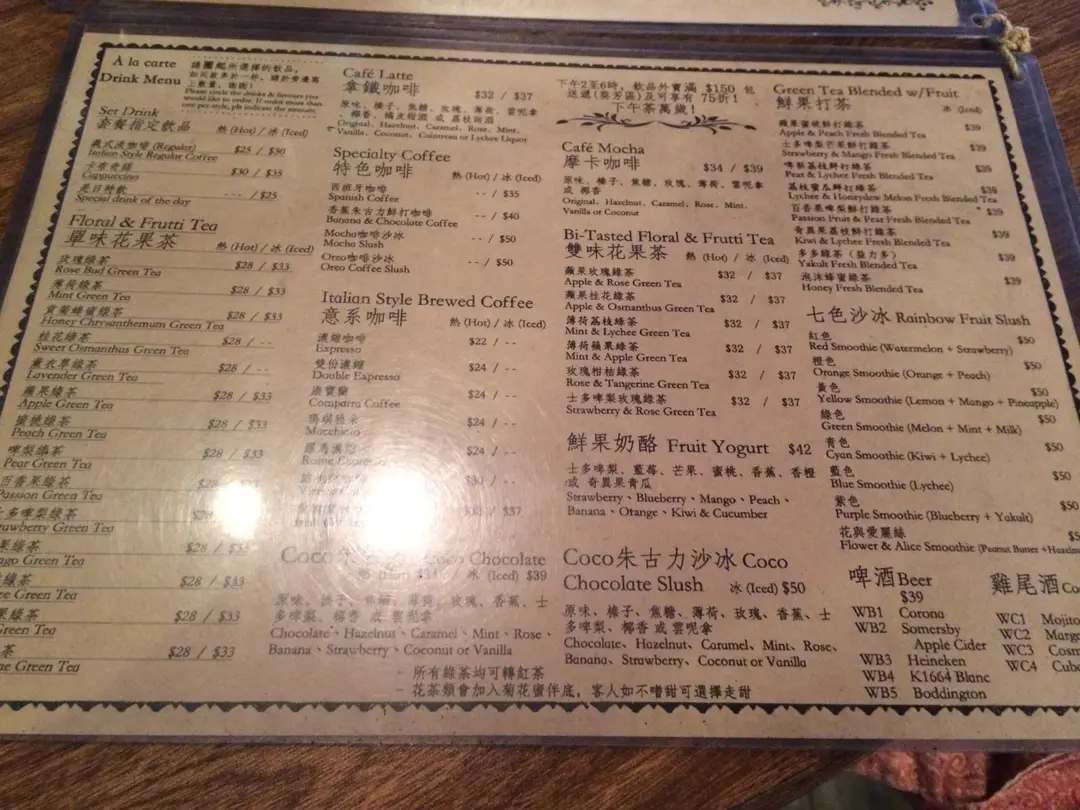 À la carte
Drink Menu
請圈起所選擇的飲品,
如同款多於一杯, 請於旁邊寫
上數量, 謝謝!
Please circle the drinks & flavours you
would like to order. If order more than
one per style, pls indicate the amount.
Set Drink
套餐指定飲品 熱 (Hot) / 冰 (Iced)
義式淡咖啡 (Regular) $25 / $30
Italian Style Regular Coffee
$30 / $35
Cappuccino
是日特飲 -- / $25
Special drink of the day
Floral & Frutti Tea
單味花果茶 熱 (Hot) / 冰 (Iced)
玫瑰綠茶 $28 / $33
Rose Bud Green Tea
薄荷綠茶 $28 / $33
Mint Green Tea
貢菊蜂蜜綠茶 $28 / $33
Honey Chrysanthemum Green Tea
桂花綠茶 $28 / --
Sweet Osmanthus Green Tea
薰衣草綠茶 $28 / --
Lavender Green Tea
蘋果綠茶 $28 / $33
Apple Green Tea
蜜桃綠茶 $28 / $33
Peach Green Tea
啤梨綠茶 $28 / $33
Pear Green Tea
百香果綠茶
Passion Green Tea
士多啤梨綠茶
Strawberry Green Tea
果綠茶 $28 / $33
Green Tea
綠茶 $28 / $33
Green Tea
果綠茶 $28 / $33
Green Tea
茶 $28 / $33
Green Tea
Café Latte
拿鐵咖啡 $32 / $37
原味、榛子、焦糖、玫瑰、薄荷、雲呢拿
椰香、橘皮甜酒 或 荔枝甜酒
Original, Hazelnut, Caramel, Rose, Mint,
Vanilla, Coconut, Cointreau or Lychee Liquor
Specialty Coffee
特色咖啡 熱 (Hot) / 冰 (Iced)
西班牙咖啡 -- / $35
Spanish Coffee
香蕉朱古力鮮打咖啡 -- / $40
Banana & Chocolate Coffee
Mocha咖啡沙冰 -- / $50
Mocha Slush
Oreo咖啡沙冰 -- / $50
Oreo Coffee Slush
Italian Style Brewed Coffee
意系咖啡 熱 (Hot) / 冰 (Iced)
濃縮咖啡 $22 / --
Expresso
雙份濃縮 $24 / --
Double Expresso
康寶蘭 $24 / --
Comparra Coffee
瑪琪雅朵 $24 / --
Macchiato
羅馬濃縮 $24 / --
Rome Espresso
$30 / --
/ $37
Coco朱 Coco Chocolate
熱 (Hot) $34 / 冰 (Iced) $39
原味、榛子、焦糖、薄荷、玫瑰、香蕉、士
多啤梨、椰香 或 雲呢拿
Chocolate、Hazelnut、Caramel、Mint、Rose、
Banana、Strawberry、Coconut or Vanilla
- 所有綠茶均可轉紅茶
- 花茶類會加入菊花蜜伴底, 客人如不嗜甜可選擇走甜
下午2至6時, 飲品外賣滿 $150 包
送遞(葵芳區)及可享有 75折!
下午茶萬歲!
Café Mocha
摩卡咖啡 $34 / $39
原味、榛子、焦糖、玫瑰、薄荷、雲呢拿
或 椰香
Original, Hazelnut, Caramel, Rose, Mint,
Vanilla or Coconut
Bi-Tasted Floral & Frutti Tea
雙味花果茶 熱 (Hot) / 冰 (Iced)
蘋果玫瑰綠茶 $32 / $37
Apple & Rose Green Tea
蘋果桂花綠茶 $32 / $37
Apple & Osmanthus Green Tea
薄荷荔枝綠茶 $32 / $37
Mint & Lychee Green Tea
薄荷蘋果綠茶 $32 / $37
Mint & Apple Green Tea
玫瑰柑桔綠茶 $32 / $37
Rose & Tangerine Green Tea
士多啤梨玫瑰綠茶 $32 / $37
Strawberry & Rose Green Tea
鮮果奶酪 Fruit Yogurt $42
士多啤梨、藍莓、芒果、蜜桃、香蕉、香橙
或 奇異果青瓜
Strawberry、Blueberry、Mango、Peach、
Banana、Orange、Kiwi & Cucumber
Coco朱古力沙冰 Coco
Chocolate Slush 冰 (Iced) $50
原味、榛子、焦糖、薄荷、玫瑰、香蕉、士
多啤梨、椰香 或 雲呢拿
Chocolate, Hazelnut, Caramel, Mint, Rose,
Banana, Strawberry, Coconut or Vanilla
Green Tea Blended w/Fruit
鮮果打茶 冰 (Iced)
蘋果蜜桃鮮打綠茶 $39
Apple & Peach Fresh Blended Tea
士多啤梨芒果鮮打綠茶 $39
Strawberry & Mango Fresh Blended Tea
啤梨荔枝鮮打綠茶 $39
Pear & Lychee Fresh Blended Tea
荔枝蜜瓜鮮打綠茶 $39
Lychee & Honeydew Melon Fresh Blended Tea
百香果啤梨鮮打綠茶 $39
Passion Fruit & Pear Fresh Blended Tea
奇異果荔枝鮮打綠茶 $39
Kiwi & Lychee Fresh Blended Tea
多多綠茶 (益力多) $39
Yakult Fresh Blended Tea
泡沫蜂蜜綠茶 $39
Honey Fresh Blended Tea
七色沙冰 Rainbow Fruit Slush
紅色 $50
Red Smoothie (Watermelon + Strawberry)
橙色 $50
Orange Smoothie (Orange + Peach)
黃色 $50
Yellow Smoothie (Lemon + Mango + Pineapple)
綠色 $50
Green Smoothie (Melon + Mint + Milk)
青色 $50
Cyan Smoothie (Kiwi + Lychee)
藍色 $50
Blue Smoothie (Lychee)
紫色 $50
Purple Smoothie (Blueberry + Yakult)
花與愛麗絲
Flower & Alice Smoothie (Peanut Butter +Hazeln
啤酒 Beer
$39
WB1 Corona
WB2 Somersby
Apple Cider
WB3 Heineken
WB4 K1664 Blanc
WB5 Boddington
雞尾酒 Co
WC1 Mojito
WC2 Marg
WC3 Cosm
WC4 Cub